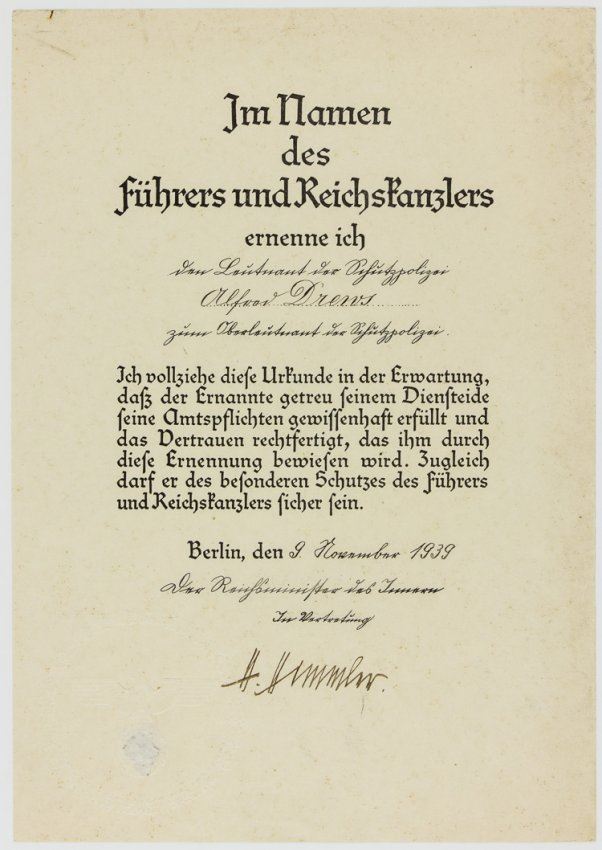 Im Namen
des
Führers und Reichskanzlers
ernenne ich
den Leutnant der Schutzpolizei
Alfred Drews
zum Oberleutnant der Schutzpolizei.
Ich vollziehe diese Urkunde in der Erwartung,
daß der Ernannte getreu seinem Diensteide
seine Amtspflichten gewissenhaft erfüllt und
das Vertrauen rechtfertigt, das ihm durch
diese Ernennung bewiesen wird. Zugleich
darf er des besonderen Schutzes des Führers
und Reichskanzlers sicher sein.
Berlin, den 9. November 1939
Der Reichsminister des Innern
In Vertretung
H. Himmler.